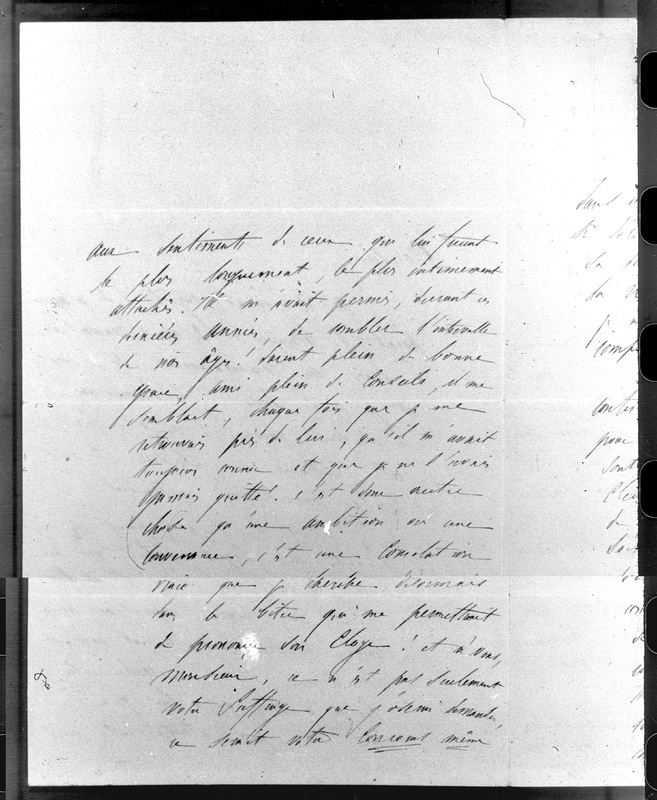 aux sentiments de ceux qui lui furent
le plus longuement, le plus intimement
attachés. Il m'avait permis, durant ces
dernières années, de combler l'intervalle
de nos âges! Savant plein de bonne
grâce, ami plein de conseils, il me
semblait, chaque fois que je me
retrouvais près de lui, qu'il m'avait
toujours connu et que je ne l'avais
jamais quitté! c'est donc autre
chose qu'une ambition ou une
convenance, c'est une Consolation
vraie que je cherche désormais
dans le titre qui me permettrait
de prononcer son Eloge! et à vous,
Monsieur, ce n'est pas seulement
votre Suffrage que j'oserai demander,
ce serait votre Concours même
sans
comp
pour
de